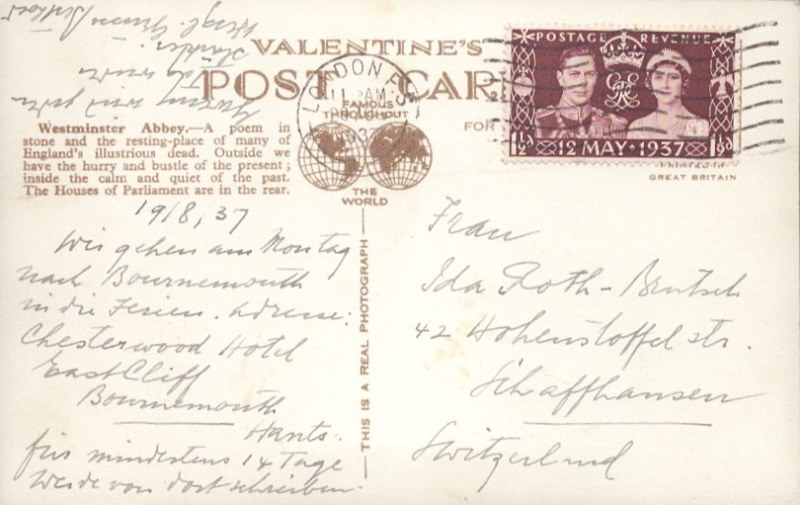 VALENTINE'S
POST CARD
FAMOUS
THROUGHOUT
THE
WORLD
FOR
LONDON
11 AM
POSTAGE REVENUE
1½D 12 MAY 1937 1½D
GREAT BRITAIN
Westminster Abbey.—A poem in
stone and the resting-place of many of
England's illustrious dead. Outside we
have the hurry and bustle of the present;
inside the calm and quiet of the past.
The Houses of Parliament are in the rear.
THIS IS A REAL PHOTOGRAPH
19/8, 37
Wir gehen am Montag
nach Bournemouth
in die Ferien. Adresse:
Chesterwood Hotel
East Cliff
Bournemouth
Hants.
für mindestens 14 Tage
Werde von dort schreiben.
Frau
Ida Roth-
42 Hohenstoffel str.
Schaffhausen
Switzerland